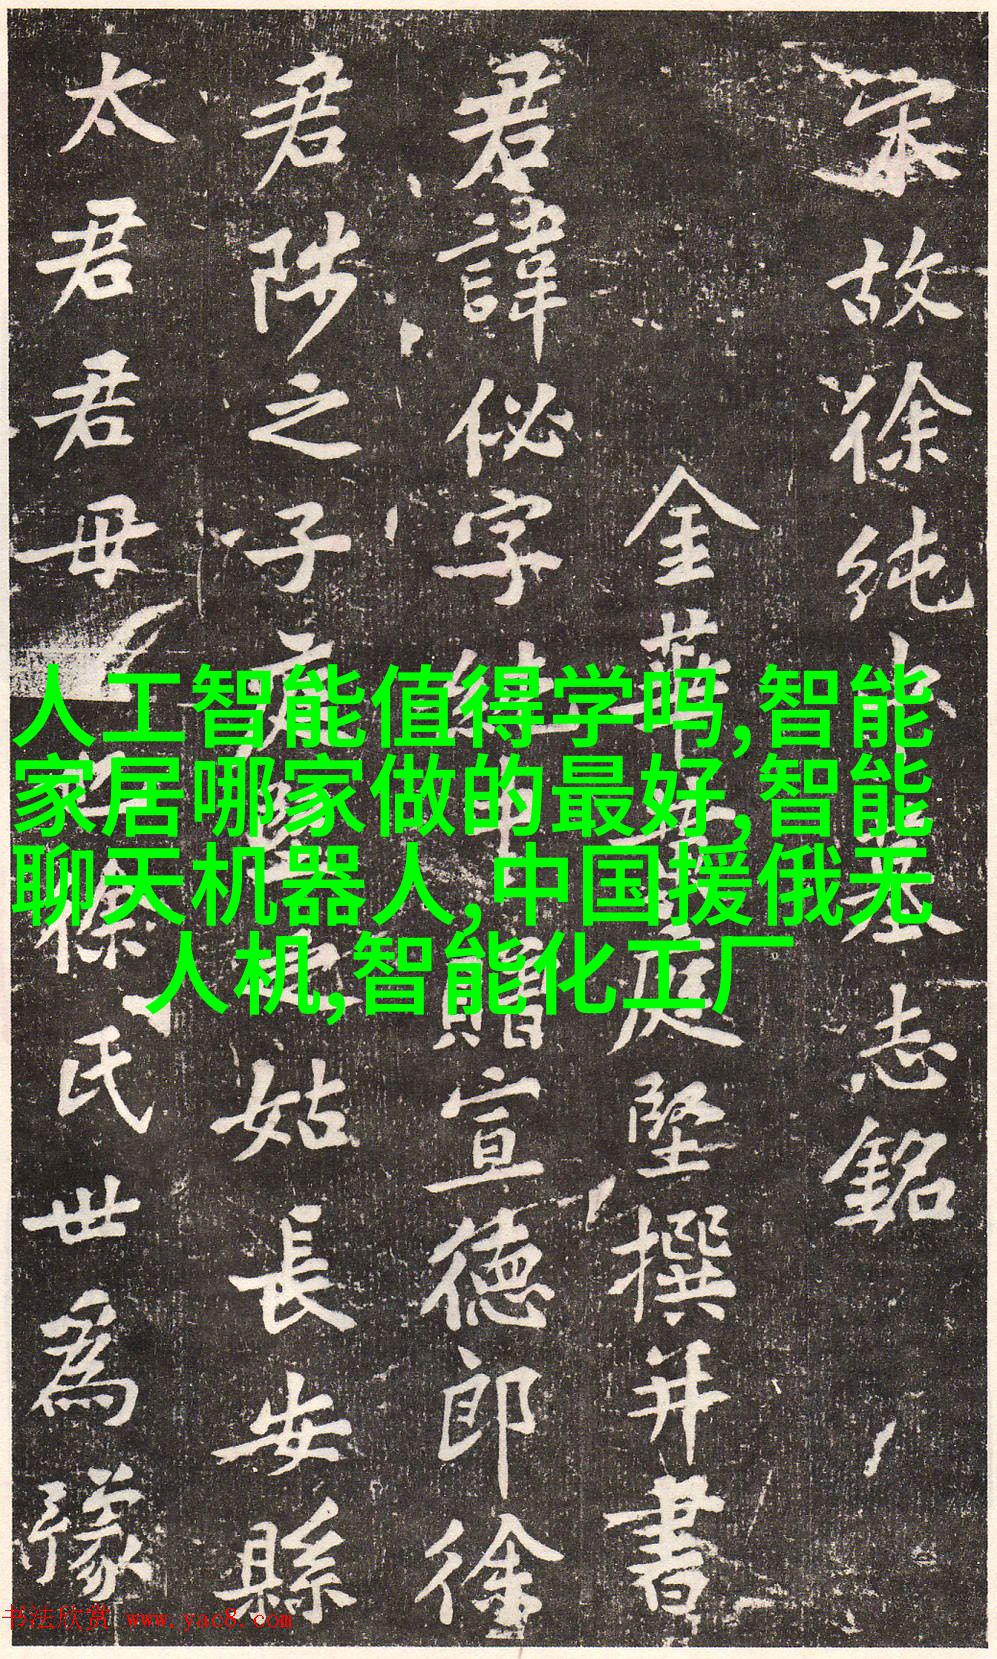 宋故徐纯中墓志銘
金華黃庭堅撰并書
君諱佖字純中贈宣德郎徐
君陟之子庭堅之姑長安縣
太君君母徐氏世為豫
人工智能值得学吗,智能
家居哪家做的最好,智能
聊天机器人,中国援俄无
人机,智能化工厂
书法欣赏 www.yac8.com